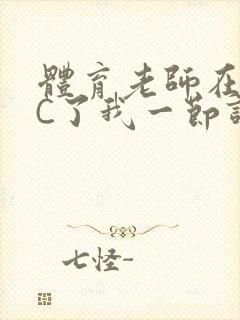 體育老師在
C了我一節
七怪-